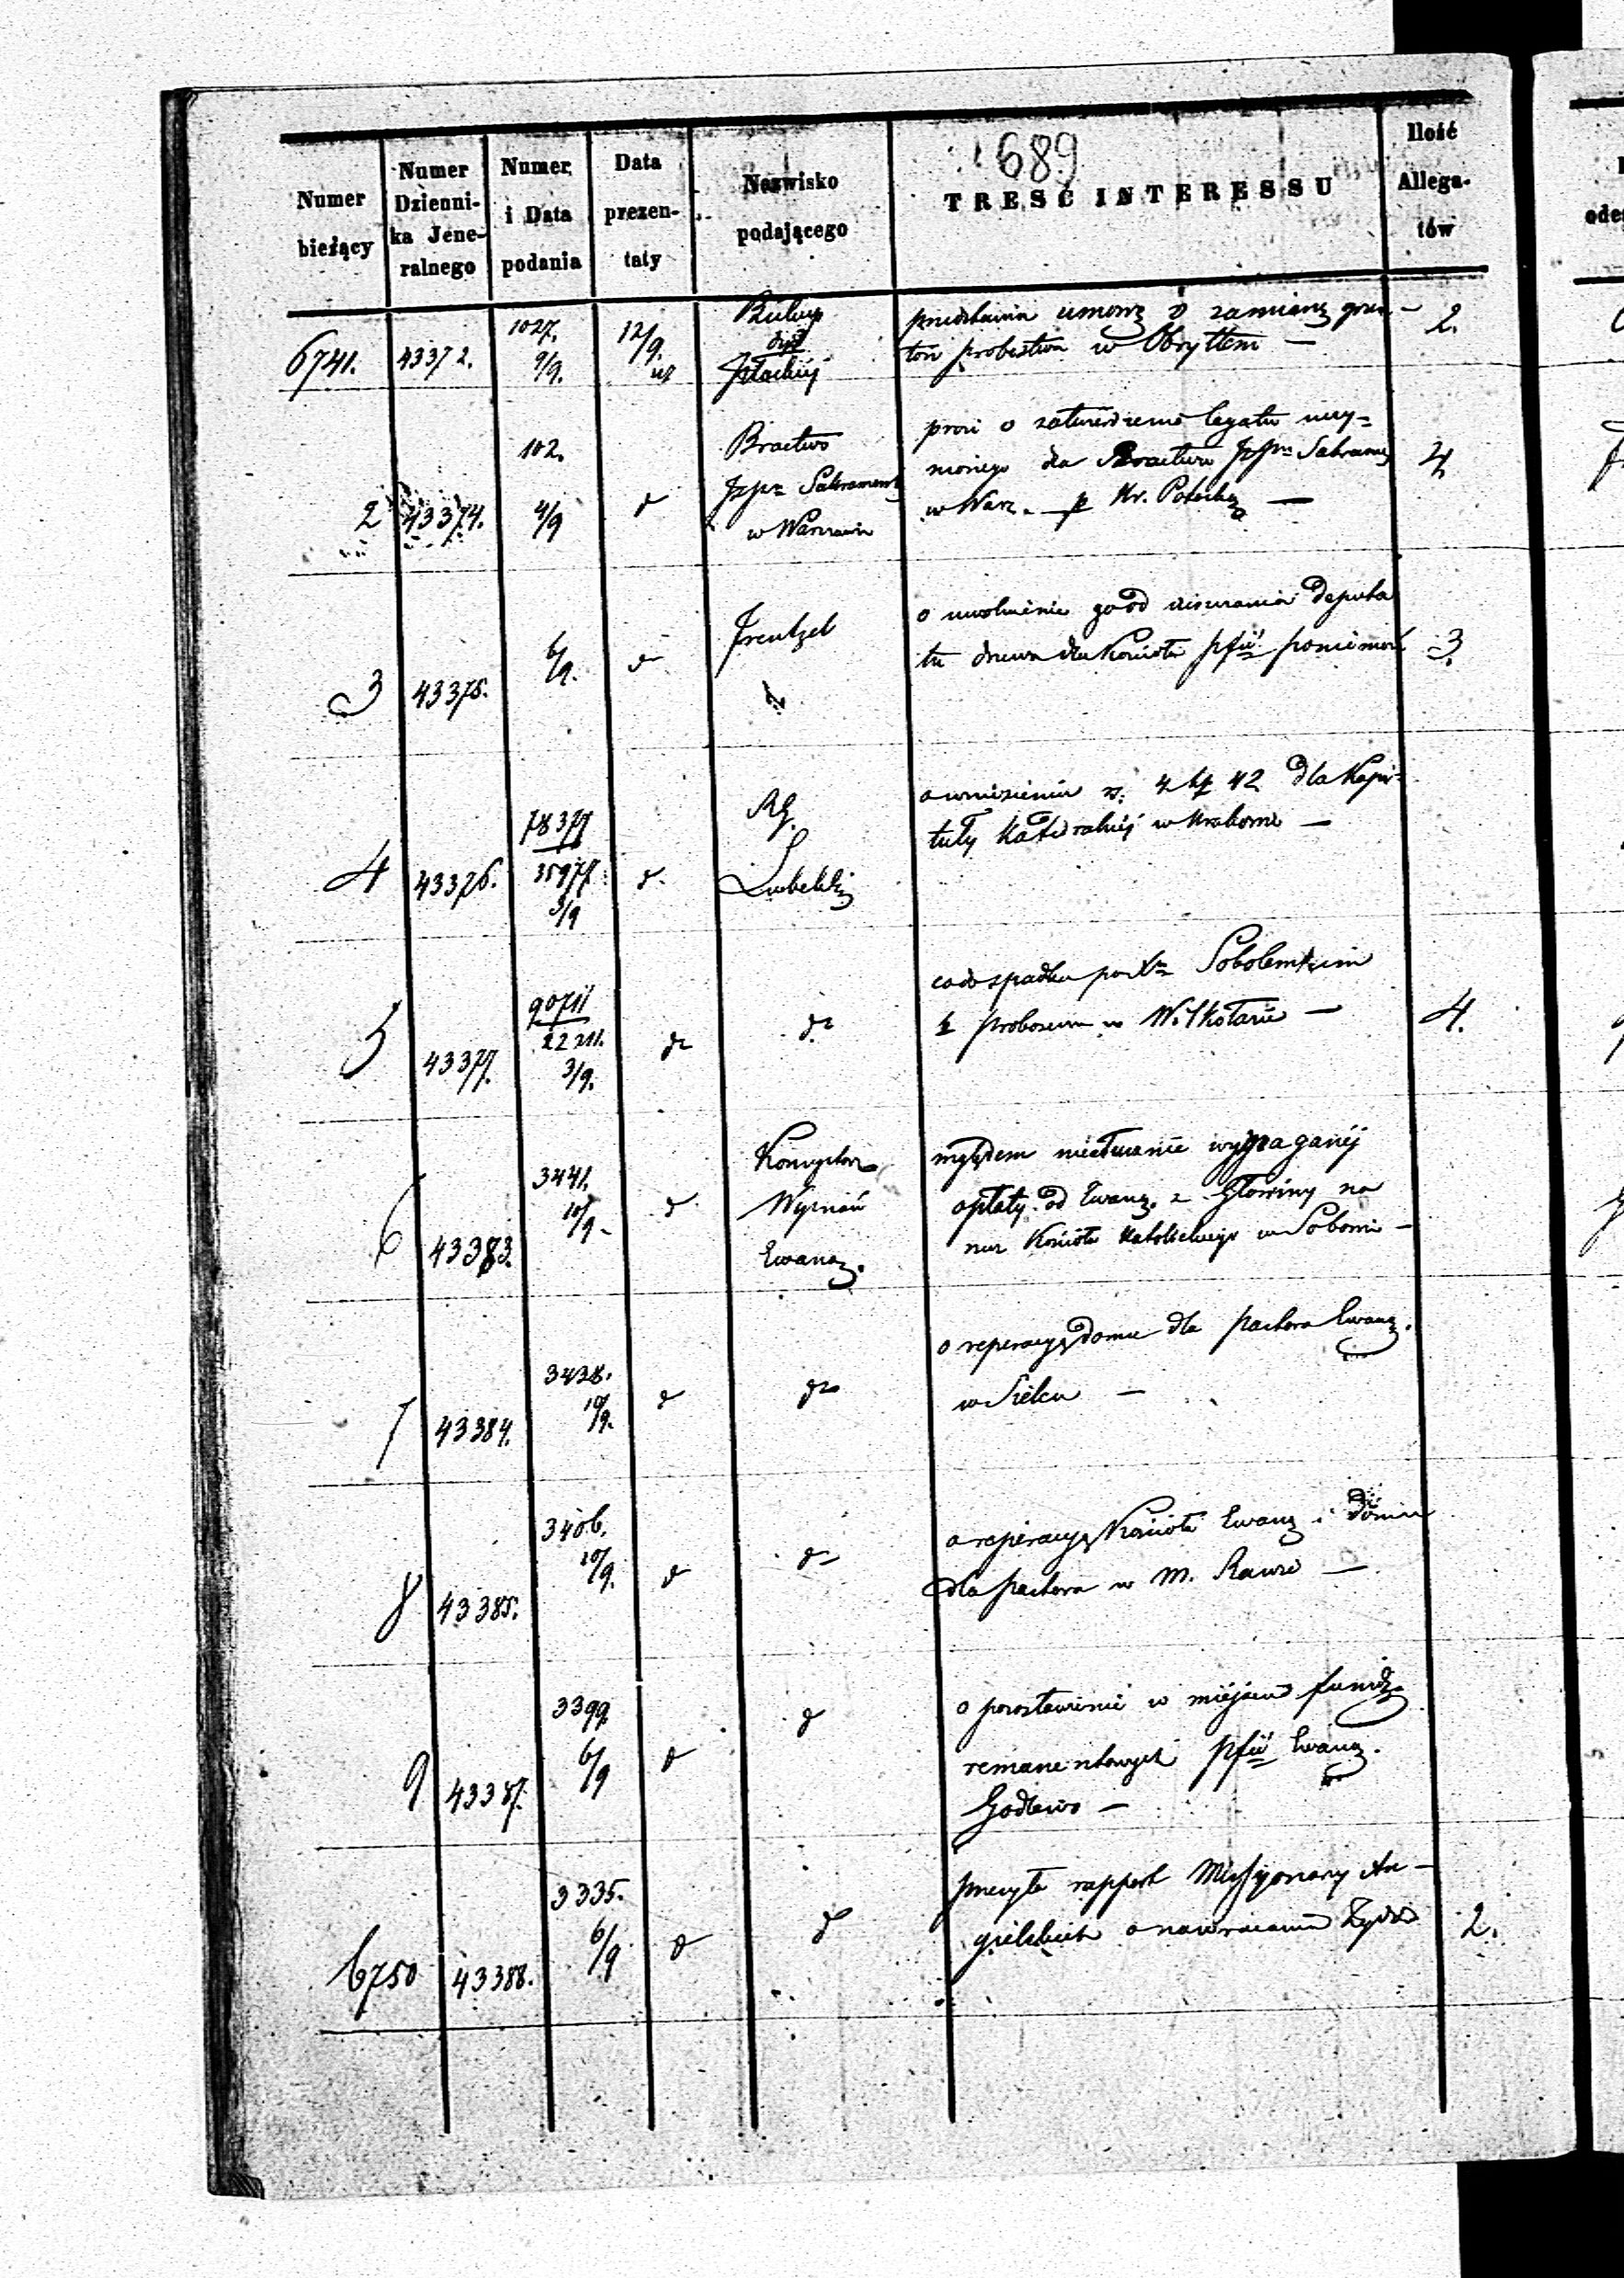 689
Numer bieżący
Numer Dziennika Jeneralnego
Numer i Data podania
Data prezentaty
Nazwisko podającego
TREŚĆ INTERESSU
Ilość Allegatów
6741. 43372. 1027. 9/9. 12/9. Biskup
dyd przedstawia umowę o zamianę grun- 2.
tów probostwa w Obrytem —
2 43374. 102. 4/9 d Bractwo
w Warszawie
prosi o zatwierdzenie legatu uczy-
nionego dla Bractwa Sakramen
w Warz. p Hr. Potocką — 4
3 43375. 6/9. d Frentzel
o uwolnienie go od uiszczania deputa
tu drzewa dla Kościoła pfii poniemoń 3.
4 43376. 78377 35977 3/9 d. RG.
Lubelski
o wniesieniu rs. 4 k 42 dla Kapi-
tuły Katedralnéj w Krakowie —
5 43377. 90711 22211. 3/9. do do
co do spadku po Xn Sobolewskim
proboszczu w Wiłkołazie — 4.
6 43383. 3441. 10/9. d Konsystorz
Wyznań
Ewang.
względem niewłaściwie wymaganéj
opłaty od Ewang. z Głowiny na
rzecz Kościoła Katolickiego w Soboni —
7 43384. 3438. 10/9. d do
o reperacyę domu dla pastora Ewang.
w Sielcu —
8 43385. 3406. 10/9. d do
o reperacyę Kościoła Ewang i domu
dla pastora w m. Rawie —
9 43387. 3399 6/9 d d
o pozostawienie w miejscu fundz.
remanentowych pfii Ewang.
Godlewo —
6750 43388. 3335. 6/9 d d
przesyła rapport Missyonarzy An-
gielskich o nawracaniu Żydów 2.